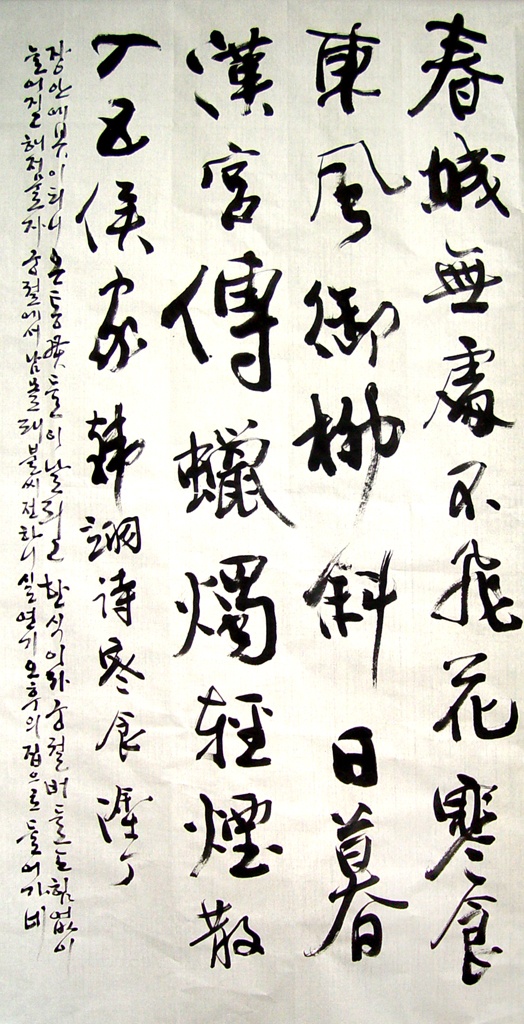 春城無處不飛花寒食
東風御柳斜日暮
漢宮傳蠟燭輕煙散
入五侯家韓翃詩寒食
장안에 봄이 되니 온통 꽃들이 날리고 한식이라 궁궐 버들도 힘없이
늘어질 해 저물자 궁궐에서 남몰래 불씨 전하니 실연기 오후의 집으로 들어가네